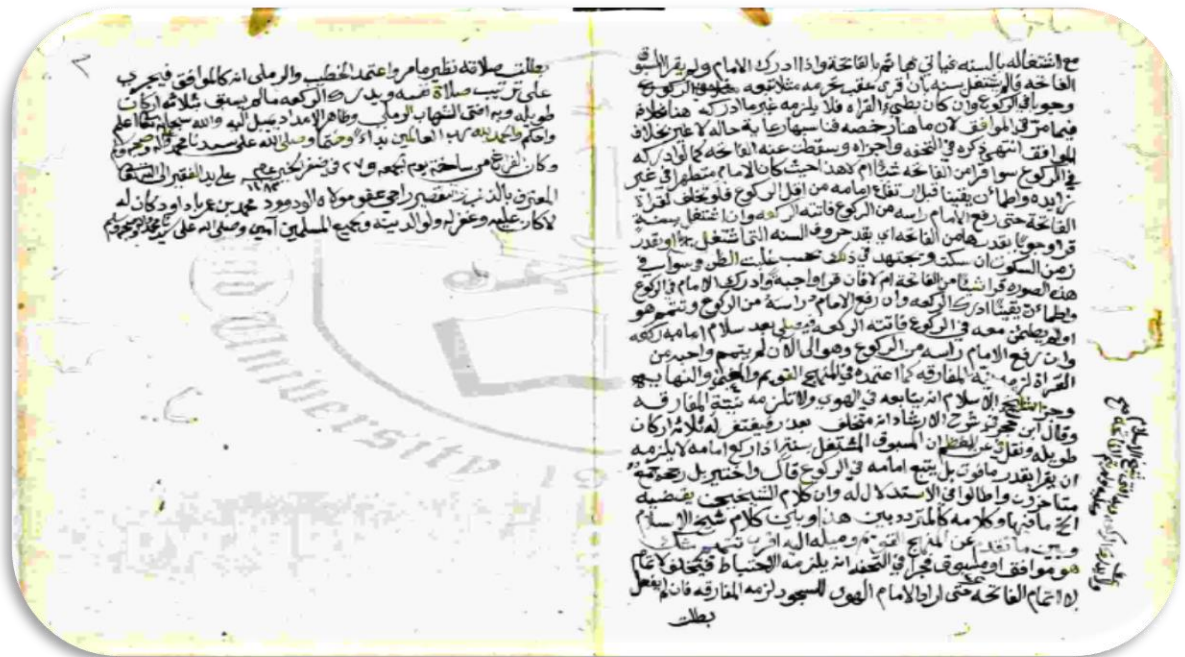 مع اشتغاله بالسنه فياتي هما ثم بالفاتحة واذا ادرك الامام ولم يقرا المسبوق
الفاتحة ولم يشتغل بسنه بان قرن عقب تحرمه مثلا تبعه في الركوع
وجوبا في الركوع وان كان بطئ القراه فلا يلزمه غير ما ادركه هنا بخلاف
فيما مر في الموافق لان ما هنا رخصه فناسبها رعاية حاله لا غير بخلاف
الموافق انتهى ذكره في التحفه واجزاه وسقطت عنه الفاتحة كما لو ادركه
في الركوع سوا قرا من الفاتحه شيئا ام لا هذا حيث كان الامام متطهرا في غير
زايده واطمأن يقينا قبل ارتفاع امامه من اقل الركوع فلو تخلف لقراة
الفاتحة حتى رفع الامام راسه من الركوع فاتته الركعه وان اشتغل بسنة
قرا وجوبا بقدرها من الفاتحه اي بقدر حروف السنه التي اشتغل بها او بقدر
زمن السكوت ان سكت ويجتهد في ذلك بحسب غلبت الظن وسوا في
هذه الصوره قرا شيئا من الفاتحة ام لا فان قرا واجبه وادرك الامام في الركوع
واطمأن يقينا ادرك الركعه وان رفع الامام راسه من الركوع ولم يتم هو
او لم يطمئن معه في الركوع فاتته الركعه فيصلي بعد سلام امامه ركعه
وان رفع الامام راسه من الركوع وهو الى الان لم يتمم واجبه من
القراة لزمه نية المفارقه كما اعتمده في المنهج القويم والنهايه
وجزم شيخ الاسلام انه يتابعه في الهوي ولا تلزمه نية المفارقه
وقال ابن حجر في شرح الارشاد انه متخلف بعذر فيغتفر له ثلاثة اركان
طويله ونقل عن المعظم ان المسبوق المشتغل بسنة اذا ركع امامه لا يلزمه
ان يقرا بقدر ما فوت بل يتبع امامه في الركوع قال واختير بل رجحه جمع
متاخرون واطالوا في الاستدلال له وان كلام الشيخين يقتضيه
الخ ما فيها وكلامه كالمتردد بين هذا وبين كلام شيخ الاسلام
وبين ما تقدم عن المنهج القويم وميله اليه اقرب تنبيه شك
هو موافق او مسبوق فجزم في التحفه انه يلزمه الاحتياط فيتخلف لاتمام
الفاتحه حتى اراد الامام الهوي للسجود لزمه المفارقه فان لم يفعل
بطلت
بطلت صلاته نظير ما مر واعتمد الخطيب والرملي انه كالموافق فيجري
على ترتيب صلاة نفسه ويدرك الركعه ما لم يسبق بثلاثة اركان
طويله وبه افتى الشهاب الرملي وظاهر الامداد يميل اليه والله سبحانه وتعالى اعلم
واحكم والحمد لله رب العالمين بداء وختما وصلى الله على سيدنا محمد واله وصحبه وسلم
وكان الفراغ من يوم الجمعه و٢٧ في صفر الخير على يد الفقير الى الله تعالى
المعترف بالذنب والتقصير راجي عفو مولاه الودود محمد بن عمر باداود كان له
وغفر له ولوالديه وجميع المسلمين آمين وصلى الله على سيدنا محمد واله وصحبه وسلم
University